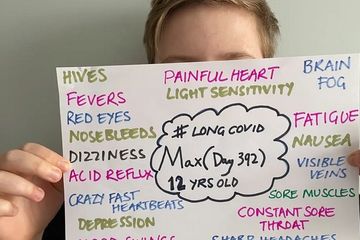 HIVES
PAINFUL HEART
BRAIN
FOG
FEVERS
LIGHT SENSITIVITY
RED EYES
NOSEBLEEDS
# LONG COVID
FATIGUE
DIZZINESS
Max (Day 392)
NAUSEA
ACID REFLUX
12 YRS OLD
VISIBLE
VEINS
CRAZY FAST
HEARTBEATS
SORE MUSCLES
DEPRESSION
CONSTANT SORE
THROAT
MOOD SWINGS
SHARP HEADACHES